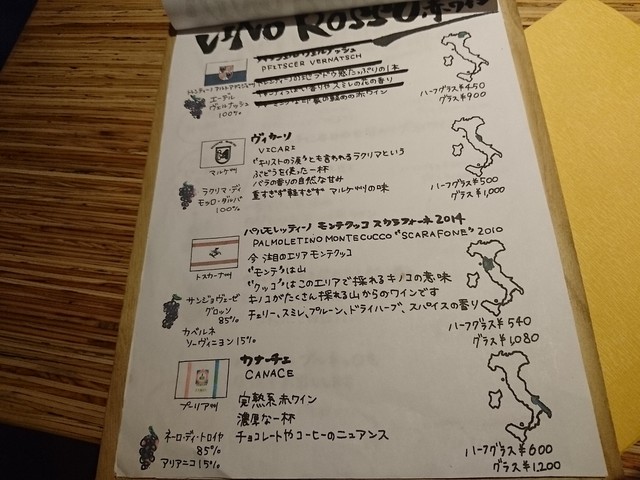 VINO ROSSO 赤ワイン
PFITSCER VERNATSCH
エーデル
ヴェルナッシュ
100%
ハーフグラス¥450
グラス¥900
ヴィカーリ
VICARI
マルケ州
"キリストの涙"とも言われるラクリマという
ぶどうを使った一杯
バラの香りの自然な甘み
重すぎず軽すぎず マルケ州の味
ラクリマ・ディ
モッロ・ダルバ
100%
ハーフグラス¥500
グラス¥1,000
パルモレッティーノ モンテクッコ スカラファーネ 2014
PALMOLETINO MONTECUCCO "SCARAFONE" 2010
トスカーナ州
今注目のエリア モンテクッコ
"モンテ"は山
"クッコ"はこのエリアで採れるキノコの意味
キノコがたくさん採れる山からのワインです
チェリー、スミレ、プルーン、ドライハーブ、スパイスの香り
サンジョヴェーゼ
グロッソ
85%
カベルネ
ソーヴィニヨン15%
ハーフグラス¥540
グラス¥1,080
カナーチェ
CANACE
プーリア州
完熟系赤ワイン
濃厚な一杯
チョコレートやコーヒーのニュアンス
ネーロ・ディ・トロイヤ
85%
アリアニコ15%
ハーフグラス¥600
グラス¥1,200